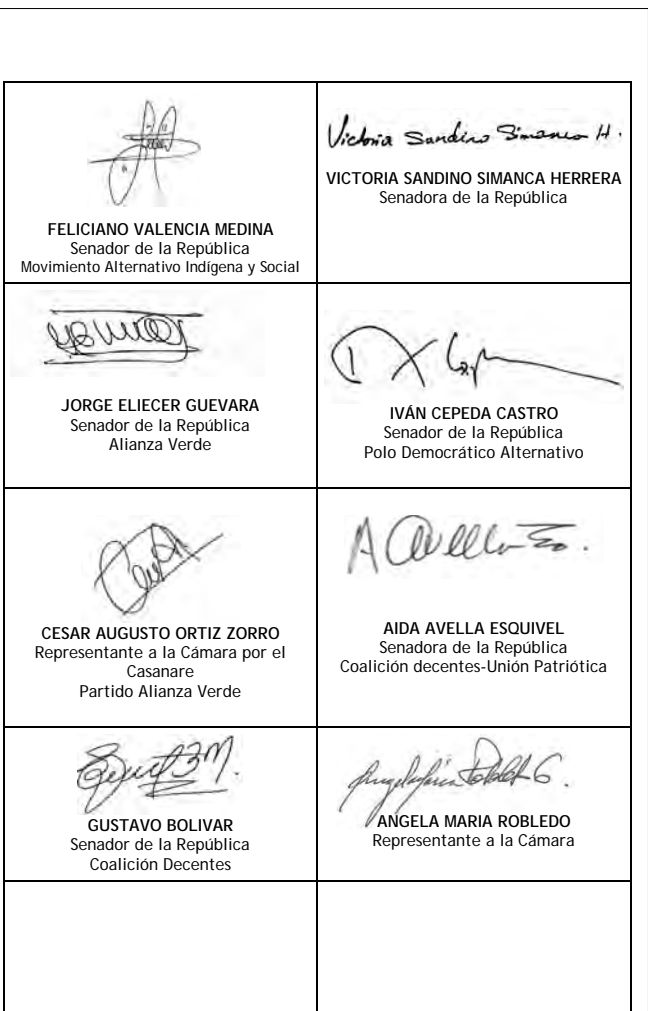 FELICIANO VALENCIA MEDINA
Senador de la República
Movimiento Alternativo Indígena y Social
Victoria Sandino Simanca H.
VICTORIA SANDINO SIMANCA HERRERA
Senadora de la República
JORGE ELIECER GUEVARA
Senador de la República
Alianza Verde
IVÁN CEPEDA CASTRO
Senador de la República
Polo Democrático Alternativo
CESAR AUGUSTO ORTIZ ZORRO
Representante a la Cámara por el
Casanare
Partido Alianza Verde
AIDA AVELLA ESQUIVEL
Senadora de la República
Coalición decentes-Unión Patriótica
GUSTAVO BOLIVAR
Senador de la República
Coalición Decentes
ANGELA MARIA ROBLEDO
Representante a la Cámara